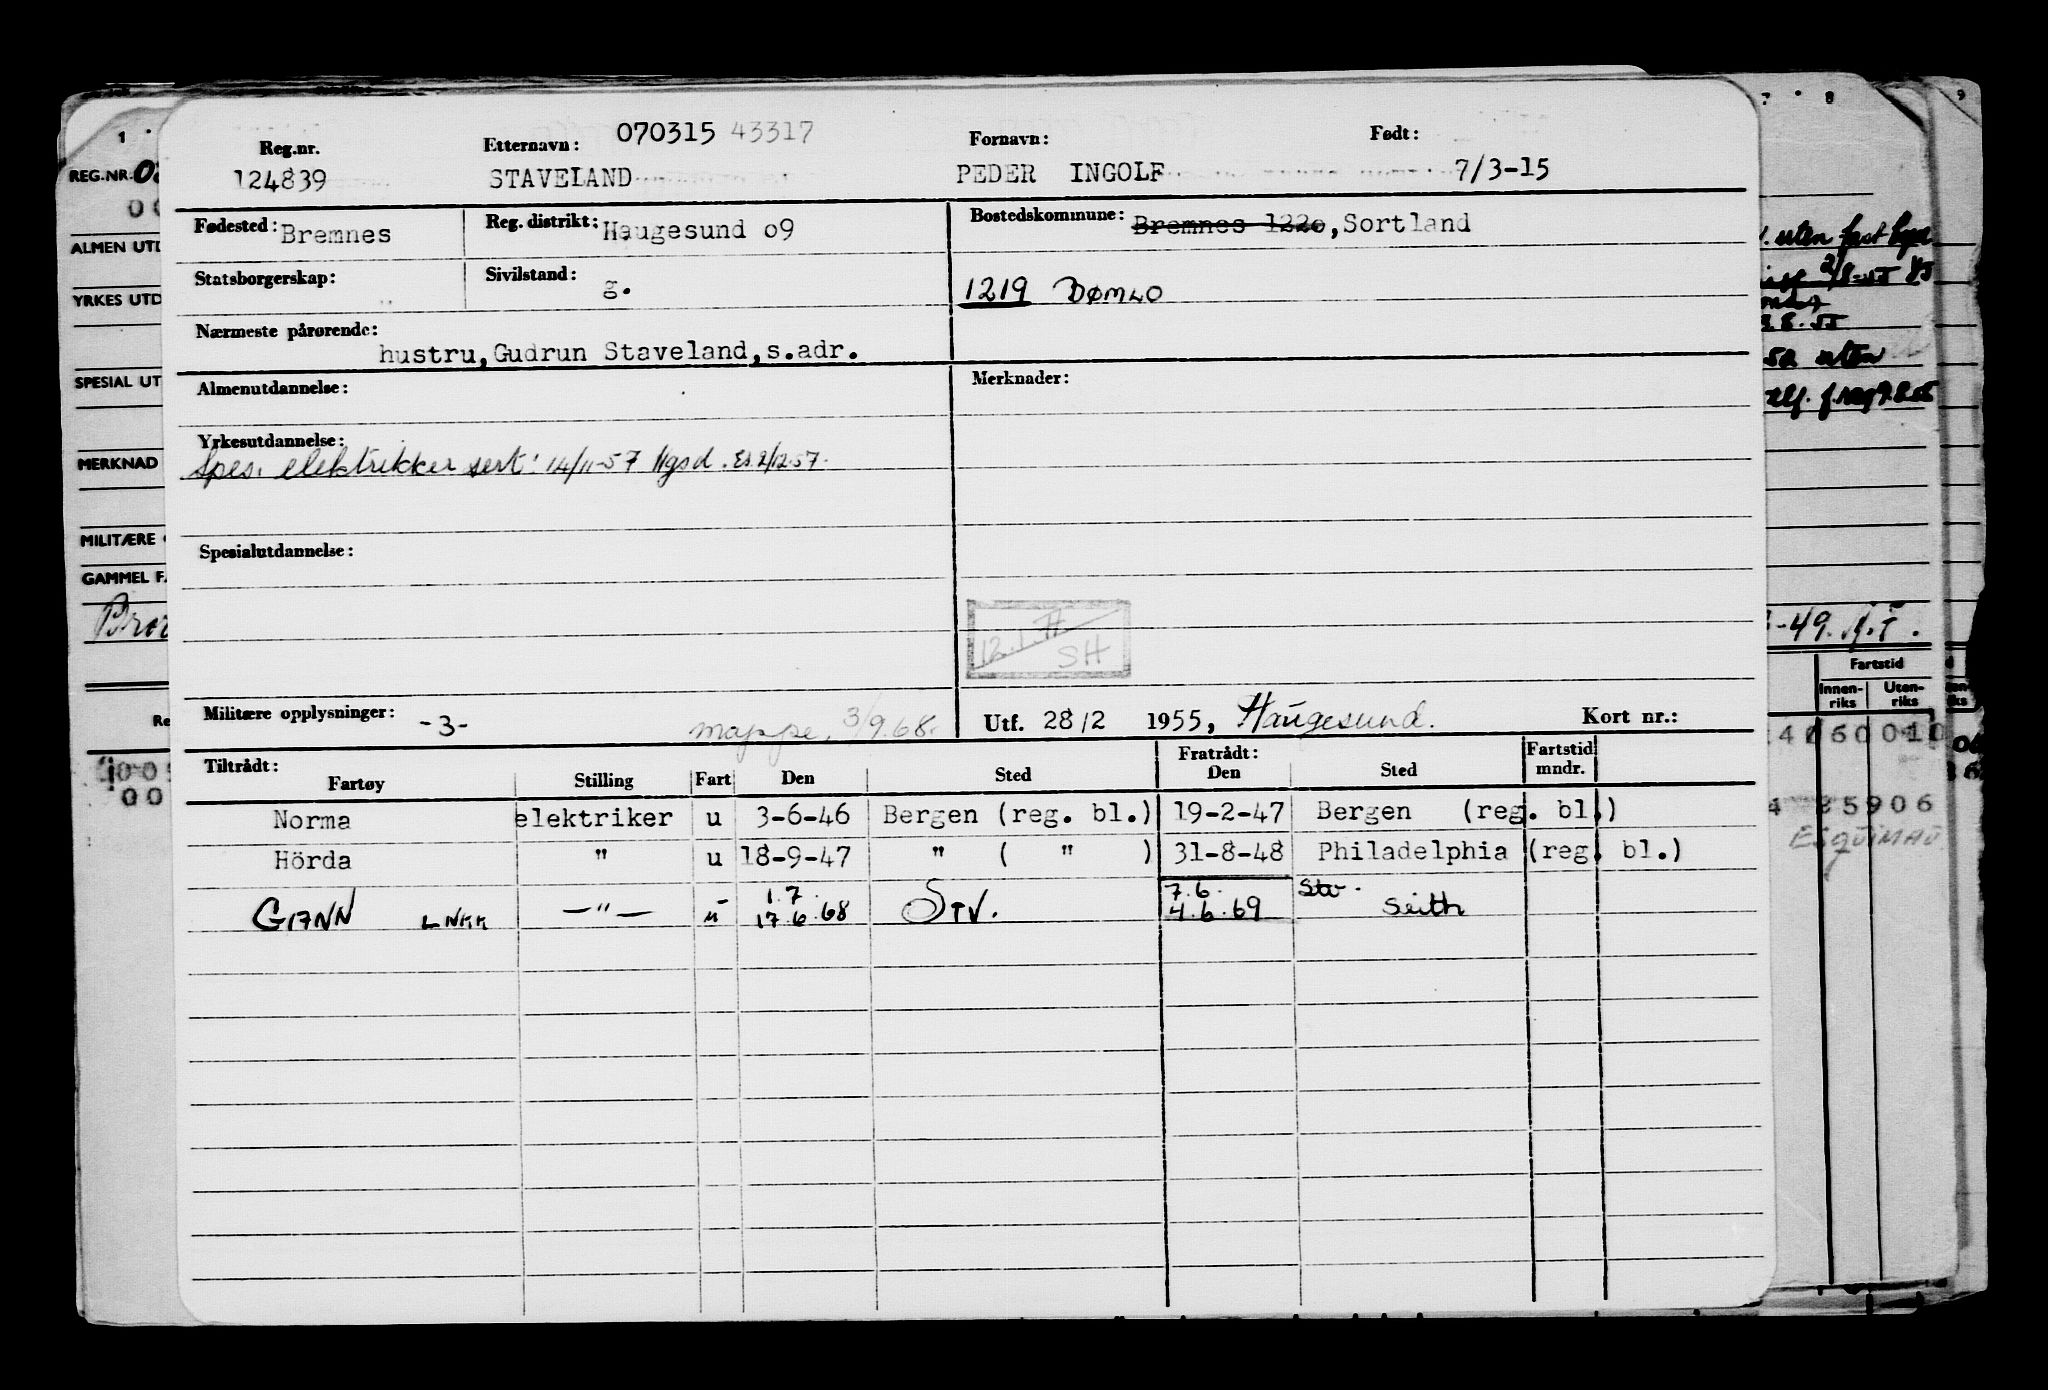 Reg.nr. Etternavn: 070315 43317 Fornavn: Født:
124839 STAVELAND PEDER INGOLF 7/3-15
Fødested: Bremnes Reg. distrikt: Haugesund 09 Bostedskommune: Bremnes 1220, Sortland
Statsborgerskap: " Sivilstand: g. 1219 BØMLO
Nærmeste pårørende:
hustru, Gudrun Staveland, s.adr.
Almenutdannelse: Merknader:
Yrkesutdannelse:
Spes. elektrikker sert: 14/11-57 Hgsd. Es 2/12-57.
Spesialutdannelse:
12.1.71
SH
Militære opplysninger: -3- mappe, 3/9.68. Utf. 28/2 1955, Haugesund. Kort nr.:
Tiltrådt: Fratrådt: Fartstid
Fartøy Stilling Fart Den Sted Den Sted mndr.
Norma elektriker u 3-6-46 Bergen (reg. bl.) 19-2-47 Bergen (reg. bl.)
Hörda " u 18-9-47 " ( " ) 31-8-48 Philadelphia (reg. bl.)
1.7. 7.6. Stv.
GIANN LNKK —"— u 17.6.68 STV. 4.6.69 Seith
1
REG.NR.
ALMEN UTD
YRKES UTD
SPESIAL UT
MERKNAD
MILITÆRE
GAMMEL FA
7 8 9
uten fast
uten
-49. A.T.
Fartstid
Innen-riks Uten-riks
ESQUIMAU